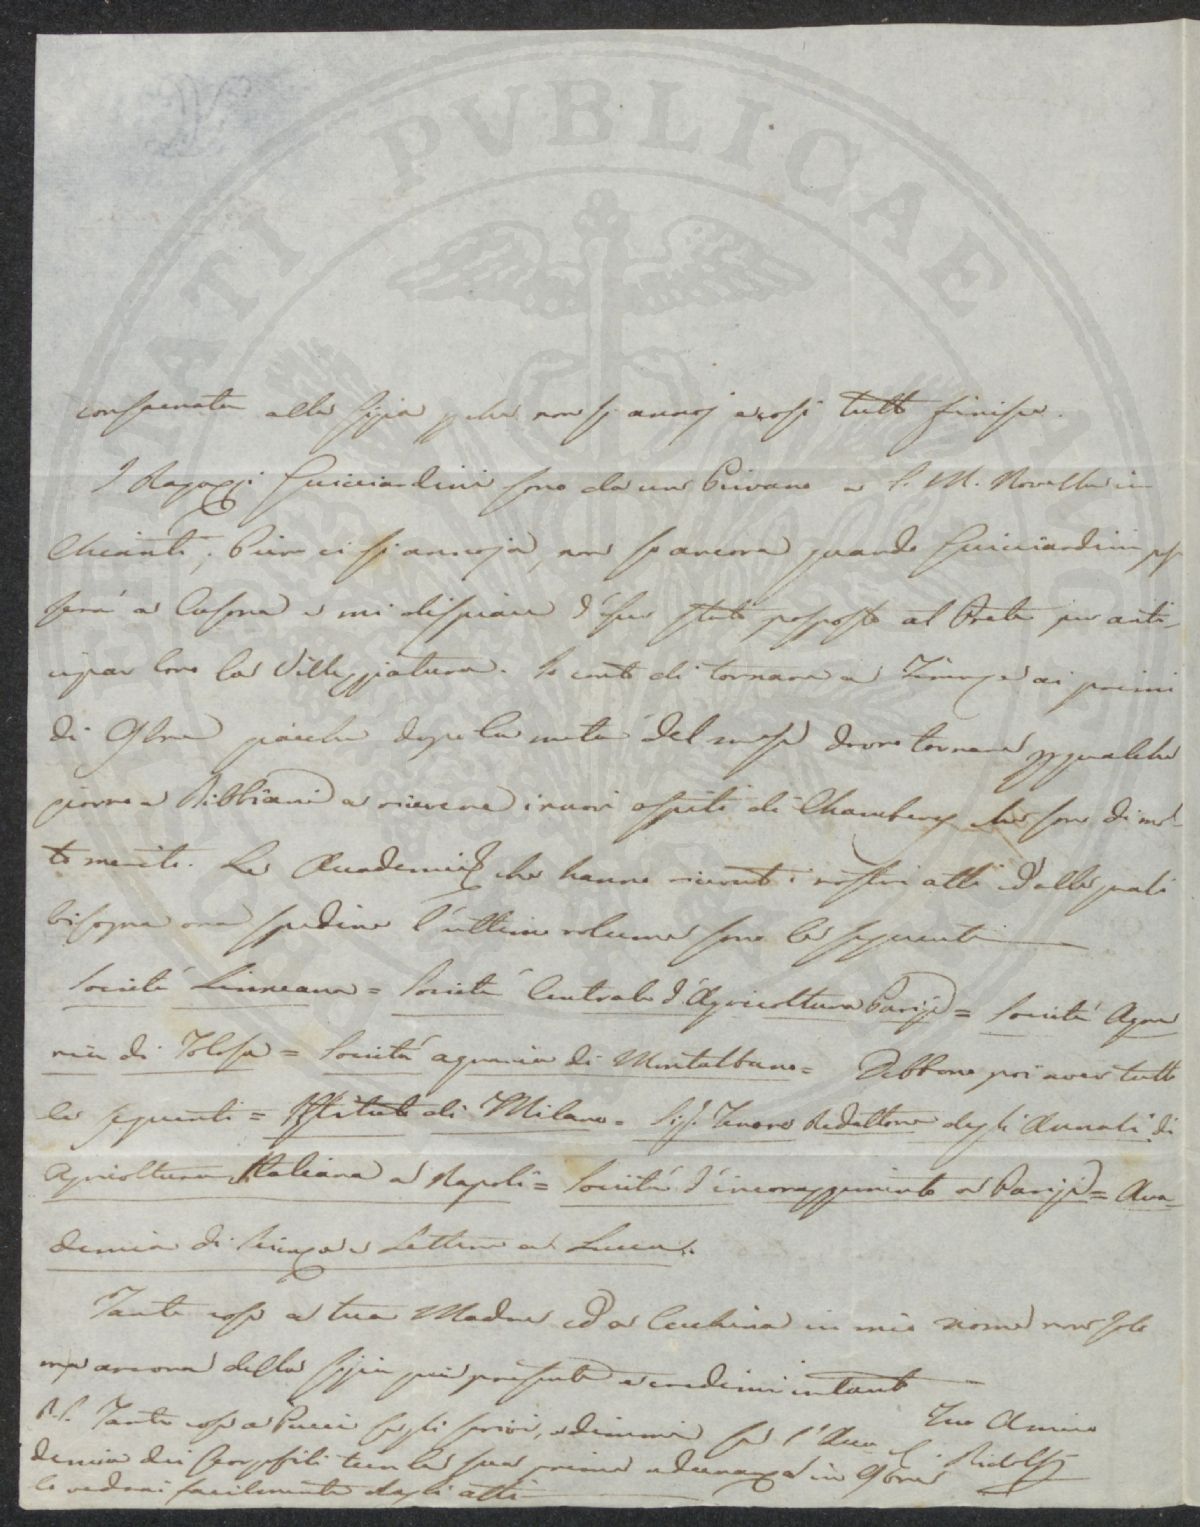 SENATI PVBLICAE
conservata alla Gigia perche non si annoj e così tutto finisce.
I Ragazzi Guicciardini sono da un Pievano a S. M. Novella in
Chianti; Piero ci si annoja, non so ancora quando Guicciardini
a Cusona e mi dispiace d'esser stato posposto al Prete per anti-
cipar loro la Villeggiatura. Io conto di tornare a Firenze ai primi
di 9bre giacche dopo la metà del mese dovrò tornare per qualche
giorno a Bibbiani a ricevere i nuovi ospiti di Chambery che sono di mol-
to merito. Le Accademie che hanno ricevuto i nostri atti e alle quali
bisogna ora spedire l'ultimo volume sono le seguenti
Società Linneana = Società Centrale d'Agricoltura Parigi = Società Agra-
ria di Tolosa = Società agraria di Montalbano = Debbono poi aver tutto
le seguenti = Istituto di Milano = Sig. Tenore Redattore degli Annali di
Agricoltura Italiana a Napoli = Società d'incoraggimento a Parigi = Acca-
demia di Scienze e Lettere a Lucca.
Tante cose a tua Madre ed a Cecchina in mio nome non solo
ma ancora della Gigia qui presente e credimi intanto
Tuo Amico
C. Ridolfi
P.S. Tante cose a Pucci se gli scrivi, e dimmi se l'Acca-
demia dei Georgofili tenne la sua prima adunanza in 9bre
lo vedrai facilmente dagli atti